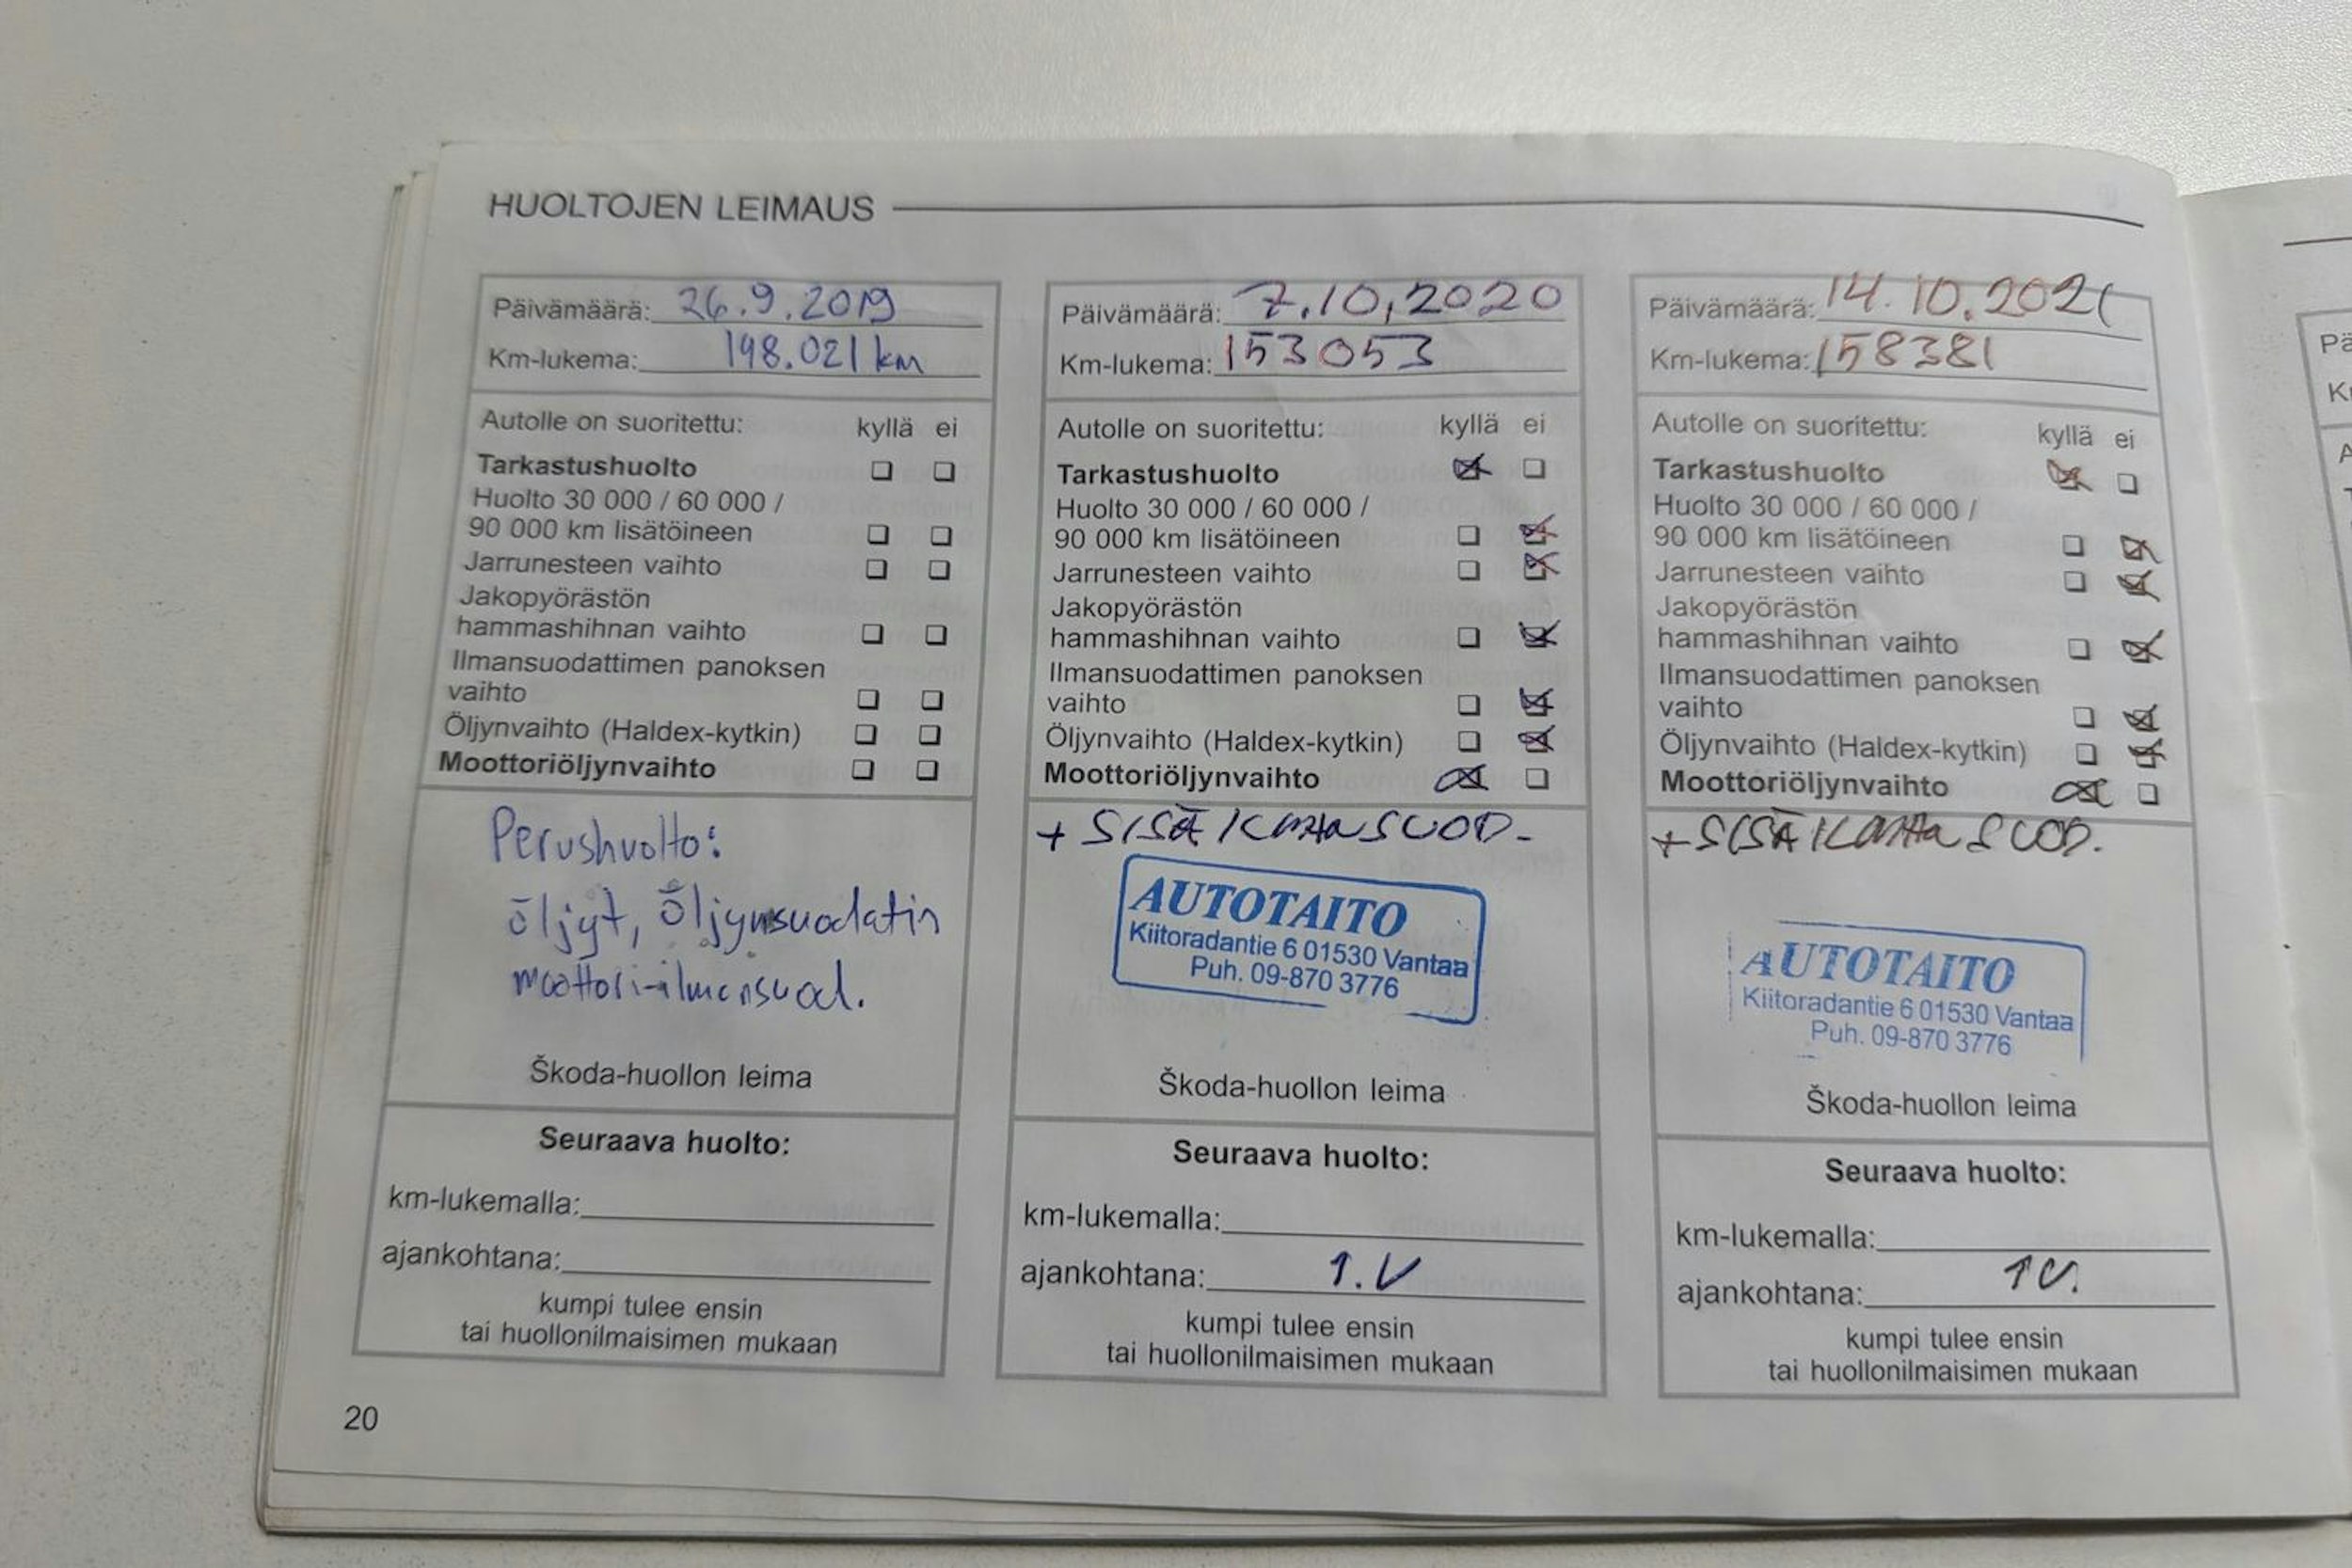 HUOLTOJEN LEIMAUS
Päivämäärä: 26.9.2019
Km-lukema: 198.021 km
Autolle on suoritettu: kyllä ei
Tarkastushuolto
Huolto 30 000 / 60 000 /
90 000 km lisätöineen
Jarrunesteen vaihto
Jakopyörästön
hammashihnan vaihto
Ilmansuodattimen panoksen
vaihto
Öljynvaihto (Haldex-kytkin)
Moottoriöljynvaihto
Perushuolto:
öljyt, Öljynsuodatin
moottori-ilmansuod.
Škoda-huollon leima
Seuraava huolto:
km-lukemalla:
ajankohtana:
kumpi tulee ensin
tai huollonilmaisimen mukaan
20
Päivämäärä: 7.10,2020
Km-lukema: 153053
Autolle on suoritettu: kyllä ei
Tarkastushuolto
Huolto 30 000 / 60 000 /
90 000 km lisätöineen
Jarrunesteen vaihto
Jakopyörästön
hammashihnan vaihto
Ilmansuodattimen panoksen
vaihto
Öljynvaihto (Haldex-kytkin)
Moottoriöljynvaihto
+ SISÄILMAN SUOD.
AUTOTAITO
Kiitoradantie 6 01530 Vantaa
Puh. 09-870 3776
Škoda-huollon leima
Seuraava huolto:
km-lukemalla:
ajankohtana: 1.V
kumpi tulee ensin
tai huollonilmaisimen mukaan
Päivämäärä: 14.10.2021
Km-lukema: 158381
Autolle on suoritettu: kyllä ei
Tarkastushuolto
Huolto 30 000 / 60 000 /
90 000 km lisätöineen
Jarrunesteen vaihto
Jakopyörästön
hammashihnan vaihto
Ilmansuodattimen panoksen
vaihto
Öljynvaihto (Haldex-kytkin)
Moottoriöljynvaihto
+ SISÄILMAN SUOD.
AUTOTAITO
Kiitoradantie 6 01530 Vantaa
Puh. 09-870 3776
Škoda-huollon leima
Seuraava huolto:
km-lukemalla:
ajankohtana: 1V.
kumpi tulee ensin
tai huollonilmaisimen mukaan